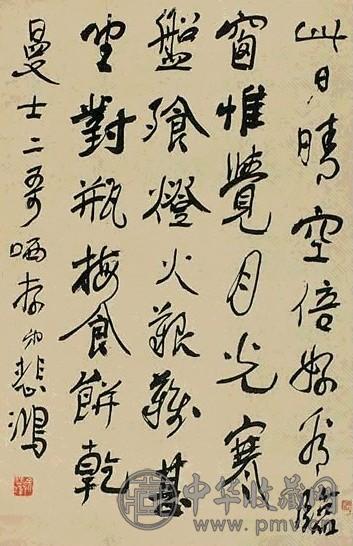 此日晴空倍好看臨
窗惟覺月光寒
盤飧燈火艱難甚
坐對瓶梅食餅乾
曼士二哥哂存弟悲鴻
中华收藏网
www.pmv.cn